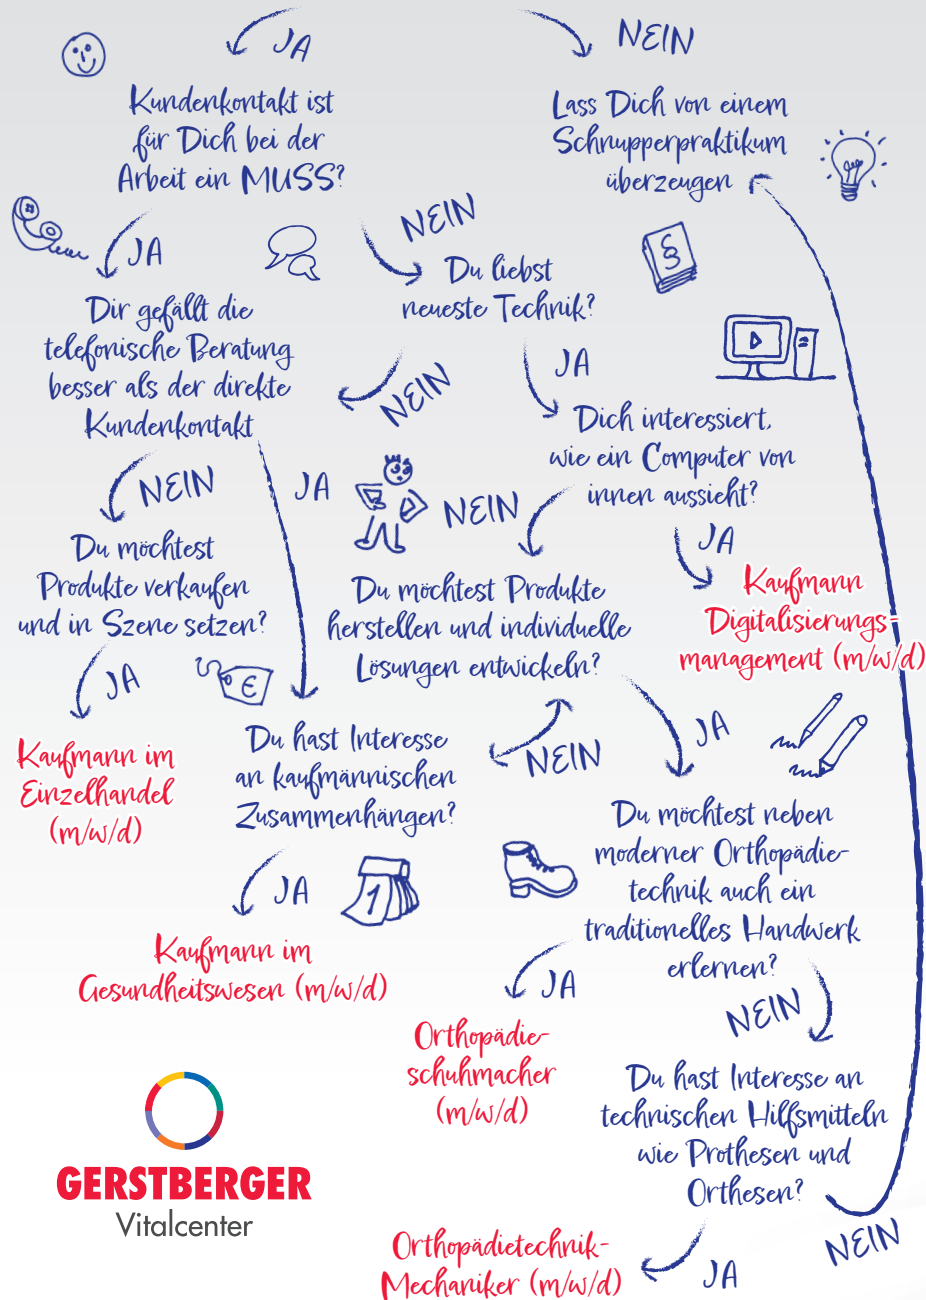 JA
NEIN
Kundenkontakt ist
für Dich bei der
Arbeit ein MUSS?
Lass Dich von einem
Schnupperpraktikum
überzeugen
JA
NEIN
§
Du liebst
neueste Technik?
Dir gefällt die
telefonische Beratung
besser als der direkte
Kundenkontakt
NEIN
JA
Dich interessiert,
wie ein Computer von
innen aussieht?
NEIN
JA
NEIN
JA
Du möchtest
Produkte verkaufen
und in Szene setzen?
Du möchtest Produkte
herstellen und individuelle
Lösungen entwickeln?
Kaufmann
Digitalisierungs-
management (m/w/d)
JA
€
JA
NEIN
Kaufmann im
Einzelhandel
(m/w/d)
Du hast Interesse
an kaufmännischen
Zusammenhängen?
Du möchtest neben
moderner Orthopädie-
technik auch ein
traditionelles Handwerk
erlernen?
JA
1
Kaufmann im
Gesundheitswesen (m/w/d)
JA
NEIN
Orthopädie-
schuhmacher
(m/w/d)
Du hast Interesse an
technischen Hilfsmitteln
wie Prothesen und
Orthesen?
GERSTBERGER
Vitalcenter
NEIN
JA
Orthopädietechnik-
Mechaniker (m/w/d)